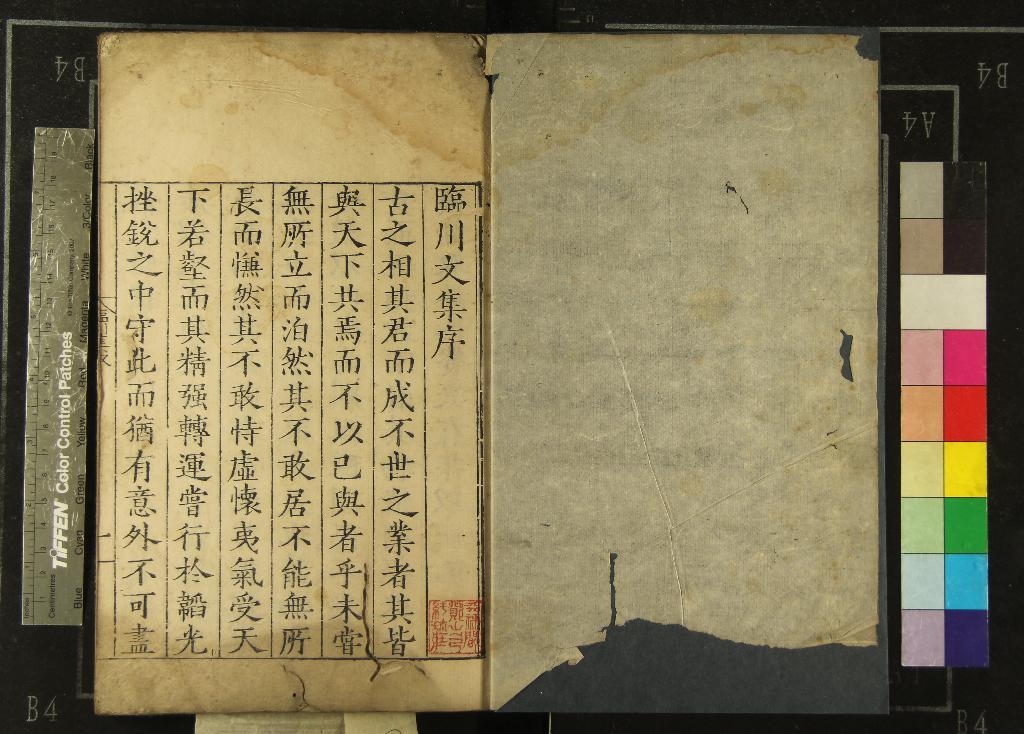 臨川文集序
古之相其君而成不世之業者其皆
與天下共焉而不以已與者乎未嘗
無所立而泊然其不敢居不能無所
長而憮然其不敢恃虛懷夷氣受天
下若壑而其精强轉運嘗行於韜光
挫銳之中守此而猶有意外不可盡
一
TIFFEN Color Control Patches
Centimetres
Blue Cyan Green Yellow Red Magenta White 3/Color Black
B4
B4
A4
B4
B4